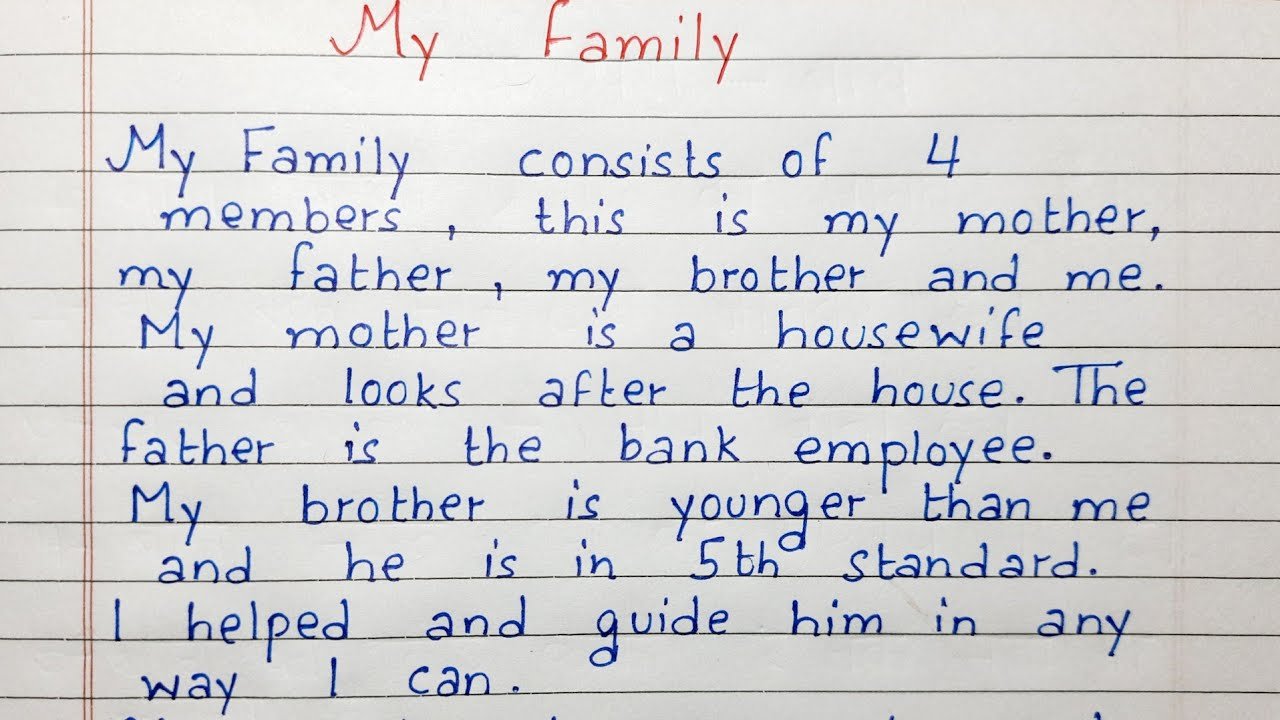 My Family
My Family consists of 4
members, this is my mother,
my father, my brother and me.
My mother is a housewife
and looks after the house. The
father is the bank employee.
My brother is younger than me
and he is in 5th standard.
I helped and guide him in any
way I can.